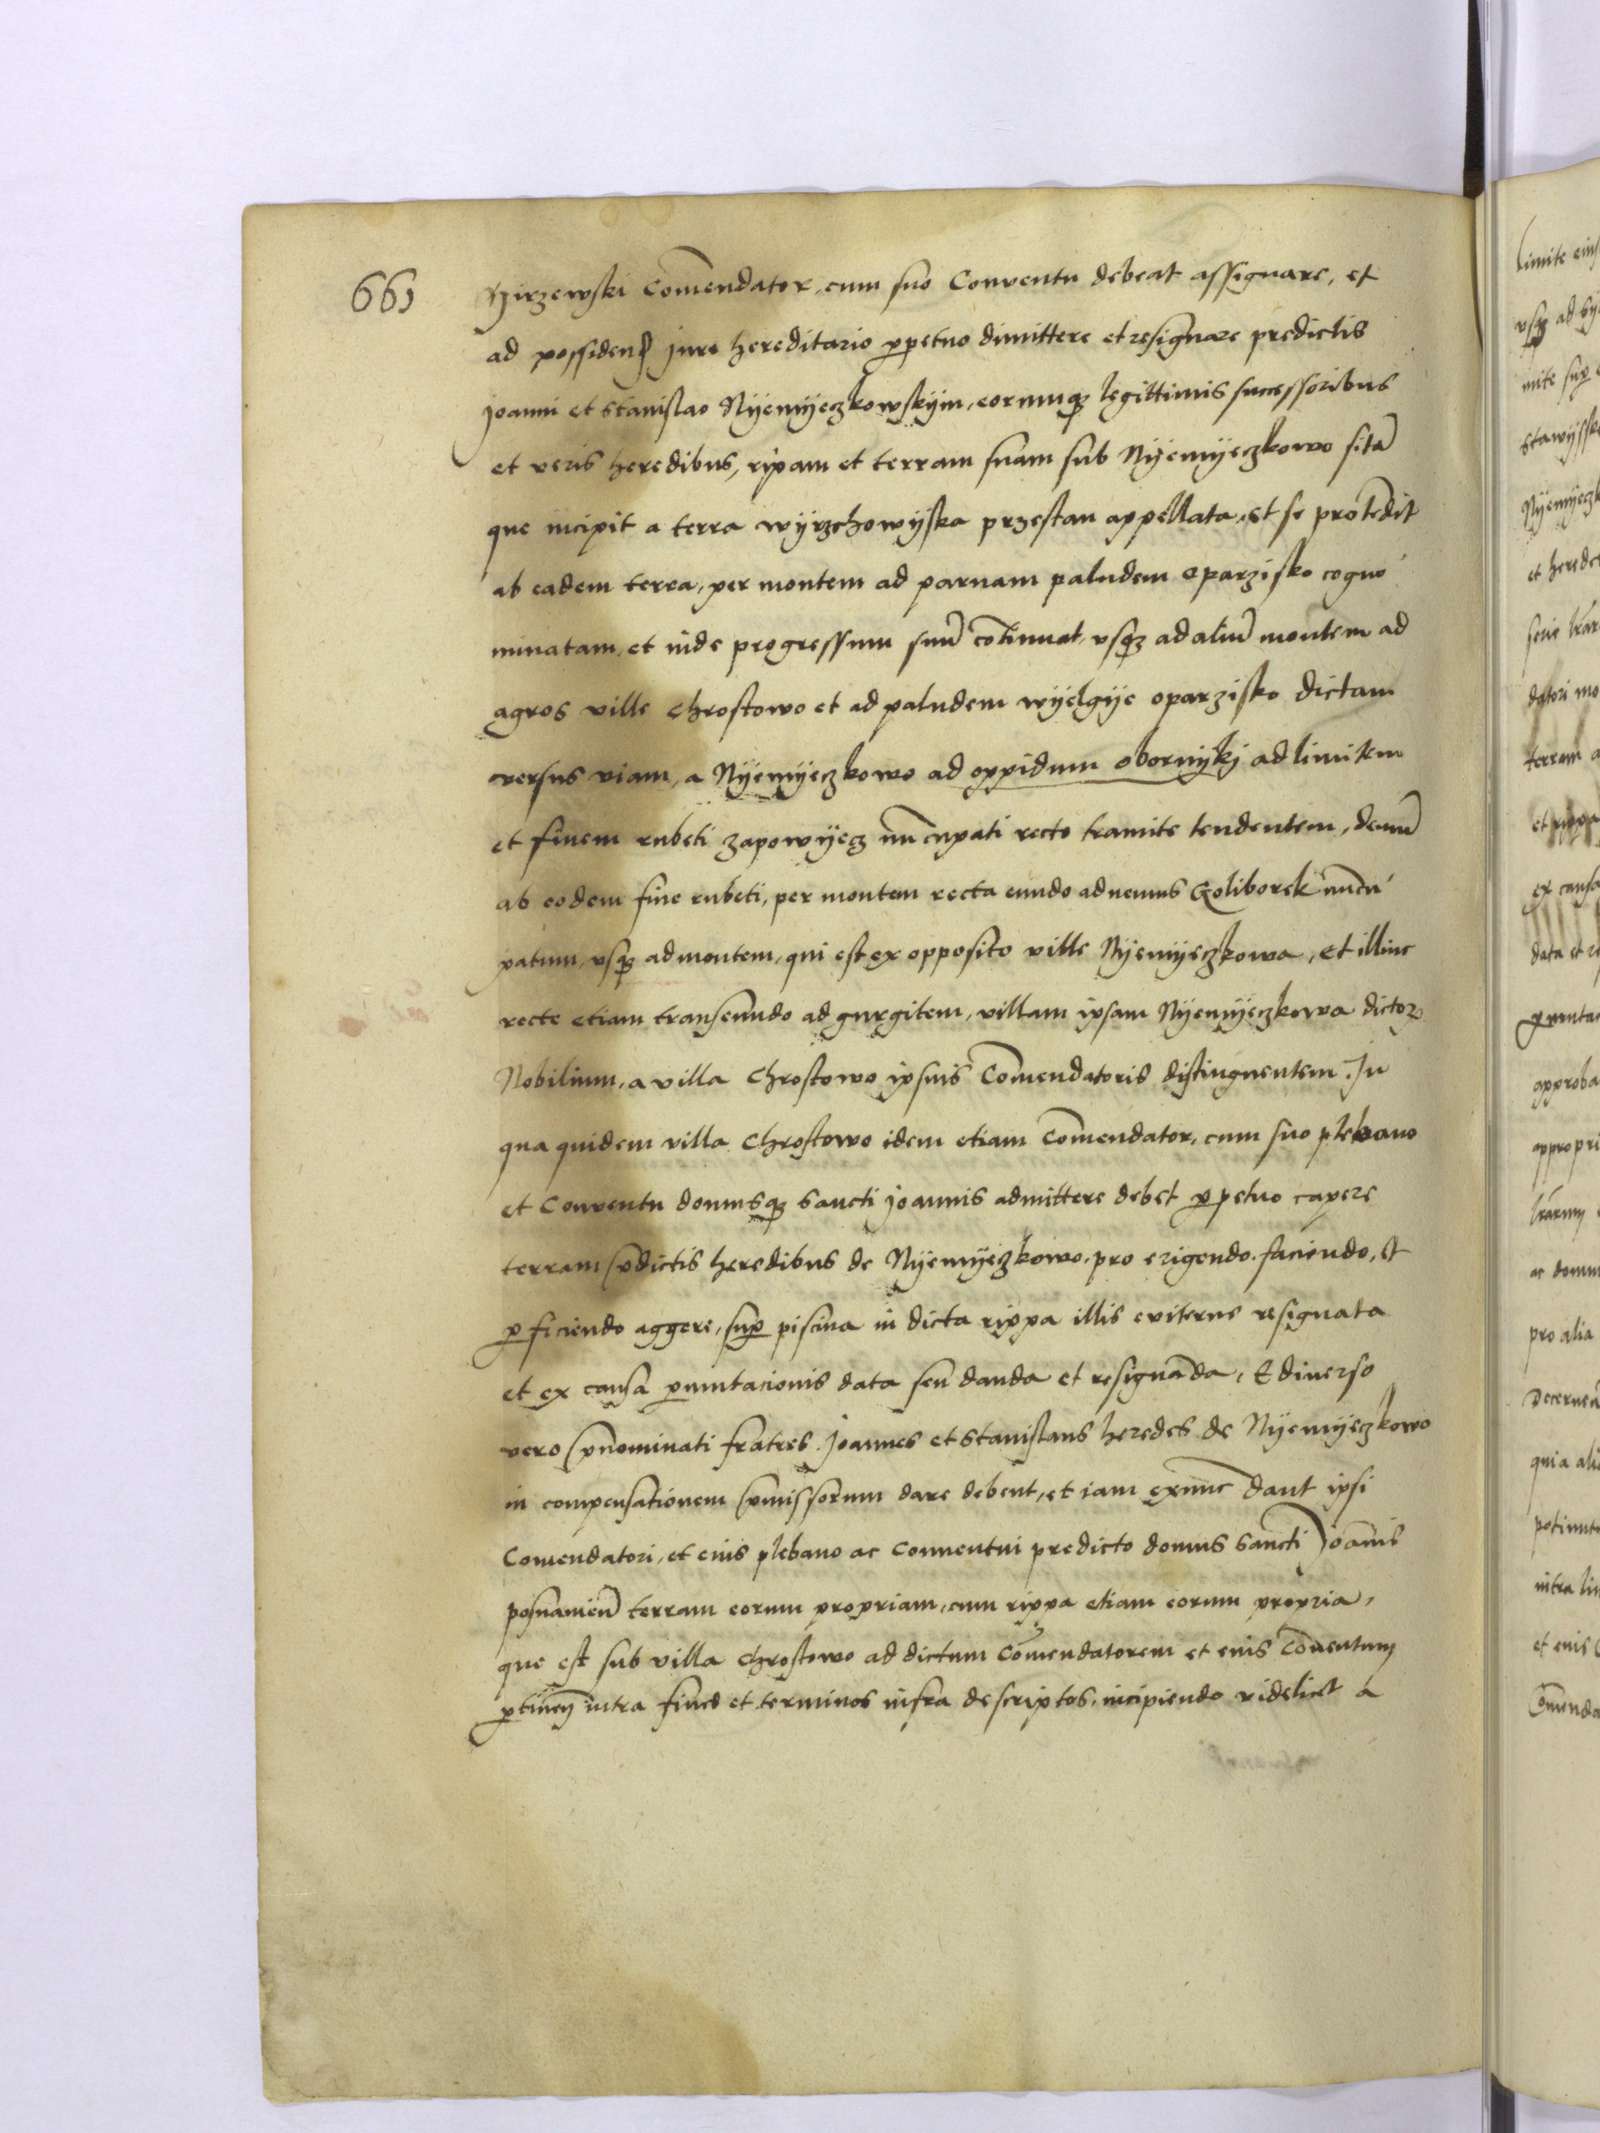 661
Hirzewski Com̄endator, cum suo Conventu debeat assignare, et
ad possidend̄ jure hereditario ꝑpetuo dimittere et resignare predictis
Joanni et Stanislao Nÿemÿeczkowskÿm, eorumqꝫ legittimis successoribus
et veris heredibus, ripam et terram suam sub Nÿemÿeczkowo sitā
que incipit a terra wÿrzchowÿska przestan appellata, et se protēdit
ab eadem terra, per montem ad parvam paludem oparzisko cogno
minatam, et inde progressum suū cōtinuat, vsqꝫ ad aliū montem ad
agros ville Chrostowo et ad paludem wÿelgÿe oparzisko dictam
versus viam, a Nÿemÿeczkowo ad oppidum obornÿkj ad limitem
et finem rubeti zapowÿecz nūcupati recto tramite tendentem, demū
ab eodem fine rubeti, per montem recta eundo ad nemus Goliborek nūcu
patum, vsqꝫ ad montem, qui est ex opposito ville Nÿemÿeczkowa, et illinc
recte etiam transeundo ad gurgitem, villam ipsam Nÿemÿeczkowa dictoꝝ
Nobilium, a villa Chrostowo ipsius Com̄endatoris distinguentem. In
qua quidem villa Chrostowo idem etiam Com̄endator, cum suo plebano
et Conventu domusqꝫ Sancti Joannis admittere debet ꝑpetuo capere
terram p̄dictis heredibus de Nÿemÿeczkowo, pro erigendo, faciendo, et
ꝑficiendo aggere, suꝑ piscina in dicta rippa illis eviterne resignata
et ex causa ꝑmutacionis data seu danda et resignāda, E diverso
vero p̄nominati fratres Joannes et Stanislaus heredes de Nÿemÿeczkowo
in compensationem p̄missorum dare debent, et iam exnunc dant ipsi
Comendatori, et eius plebano ac Conventui predicto domus Sancti Joānis
posnanien̄ terram eorum propriam, cum rippa etiam eorum propria,
que est sub villa Chrostowo ad dictum Com̄endatorem et eius Cōventum
ꝑtineñ intra fines et terminos infra descriptos, incipiendo videlicet a